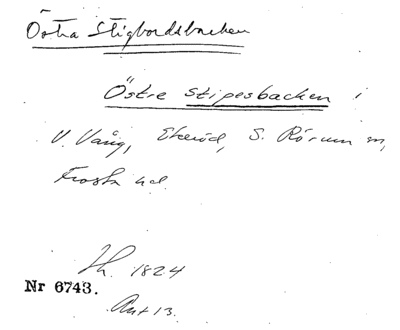 Östra Stigbordsbacken
Östre Stipesbacken i
V. Vång, Ekeröd, S. Rörum sn,
Frosta hd.
Th. 1824
Nr 6743.
Akt 13.